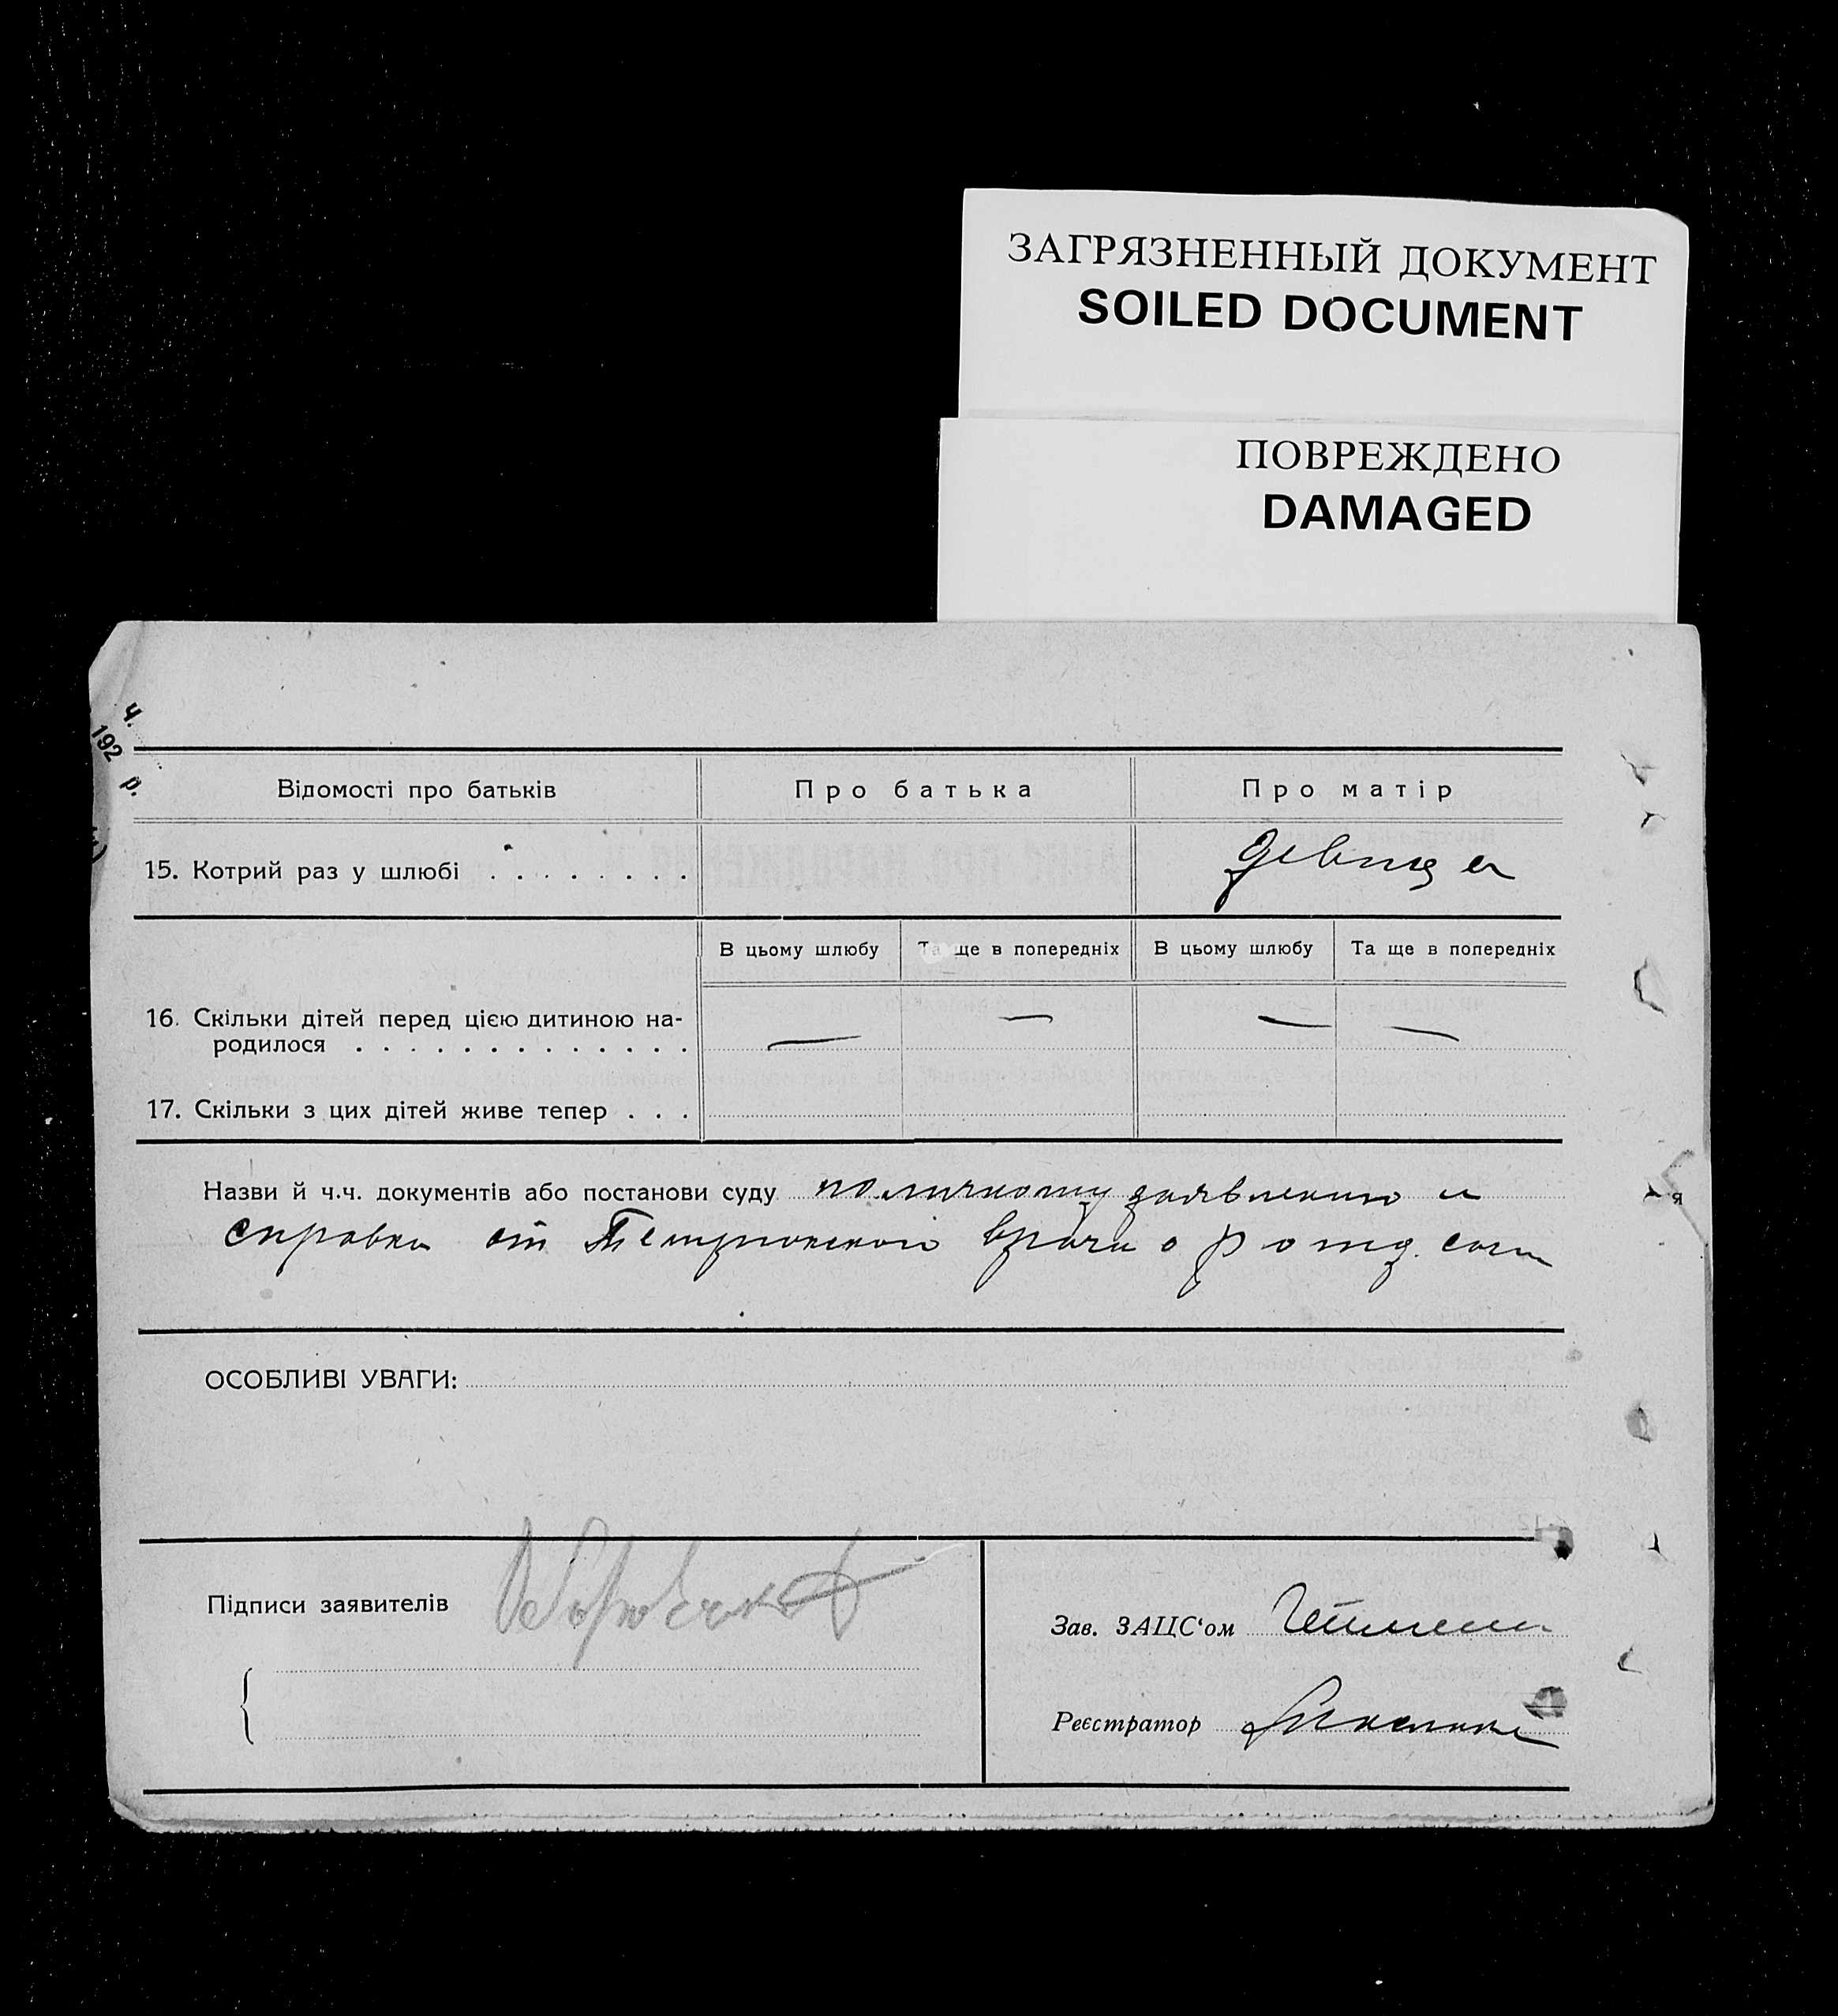 ЗАГРЯЗНЕННЫЙ ДОКУМЕНТ
SOILED DOCUMENT
ПОВРЕЖДЕНО
DAMAGED
ч.
192 р.
Відомості про батьків Про батька Про матір
15. Котрий раз у шлюбі . . . . . . . . девица
В цьому шлюбу Та ще в попередніх В цьому шлюбу Та ще в попередніх
16. Скільки дітей перед цією дитиною на- — — — —
родилося . . . . . . . . . . . . .
17. Скільки з цих дітей живе тепер . . .
Назви й ч.ч. документів або постанови суду по личному заявлению и
справки от врача о
ОСОБЛИВІ УВАГИ:
Підписи заявителів
Зав. ЗАЦС‘ом
Реєстратор